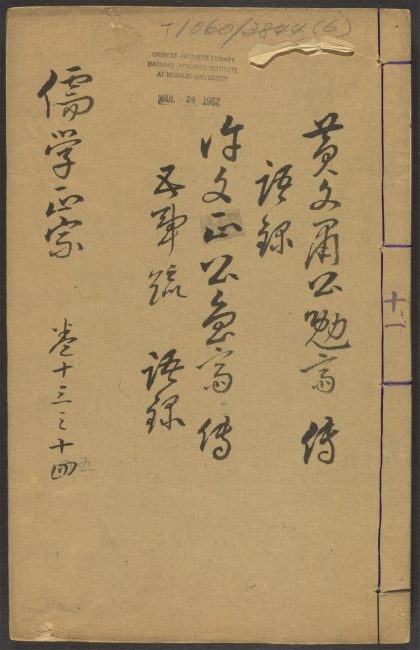 T1060/3844(6)
CHINESE-JAPANESE LIBRARY
HARVARD-YENCHING INSTITUTE
AT HARVARD UNIVERSITY
24 1962
黄文肅公勉斋 傳
語錄
許文正公魯斋 傳
五事疏 語錄
儒学正宗 卷十三之十四
五
十一